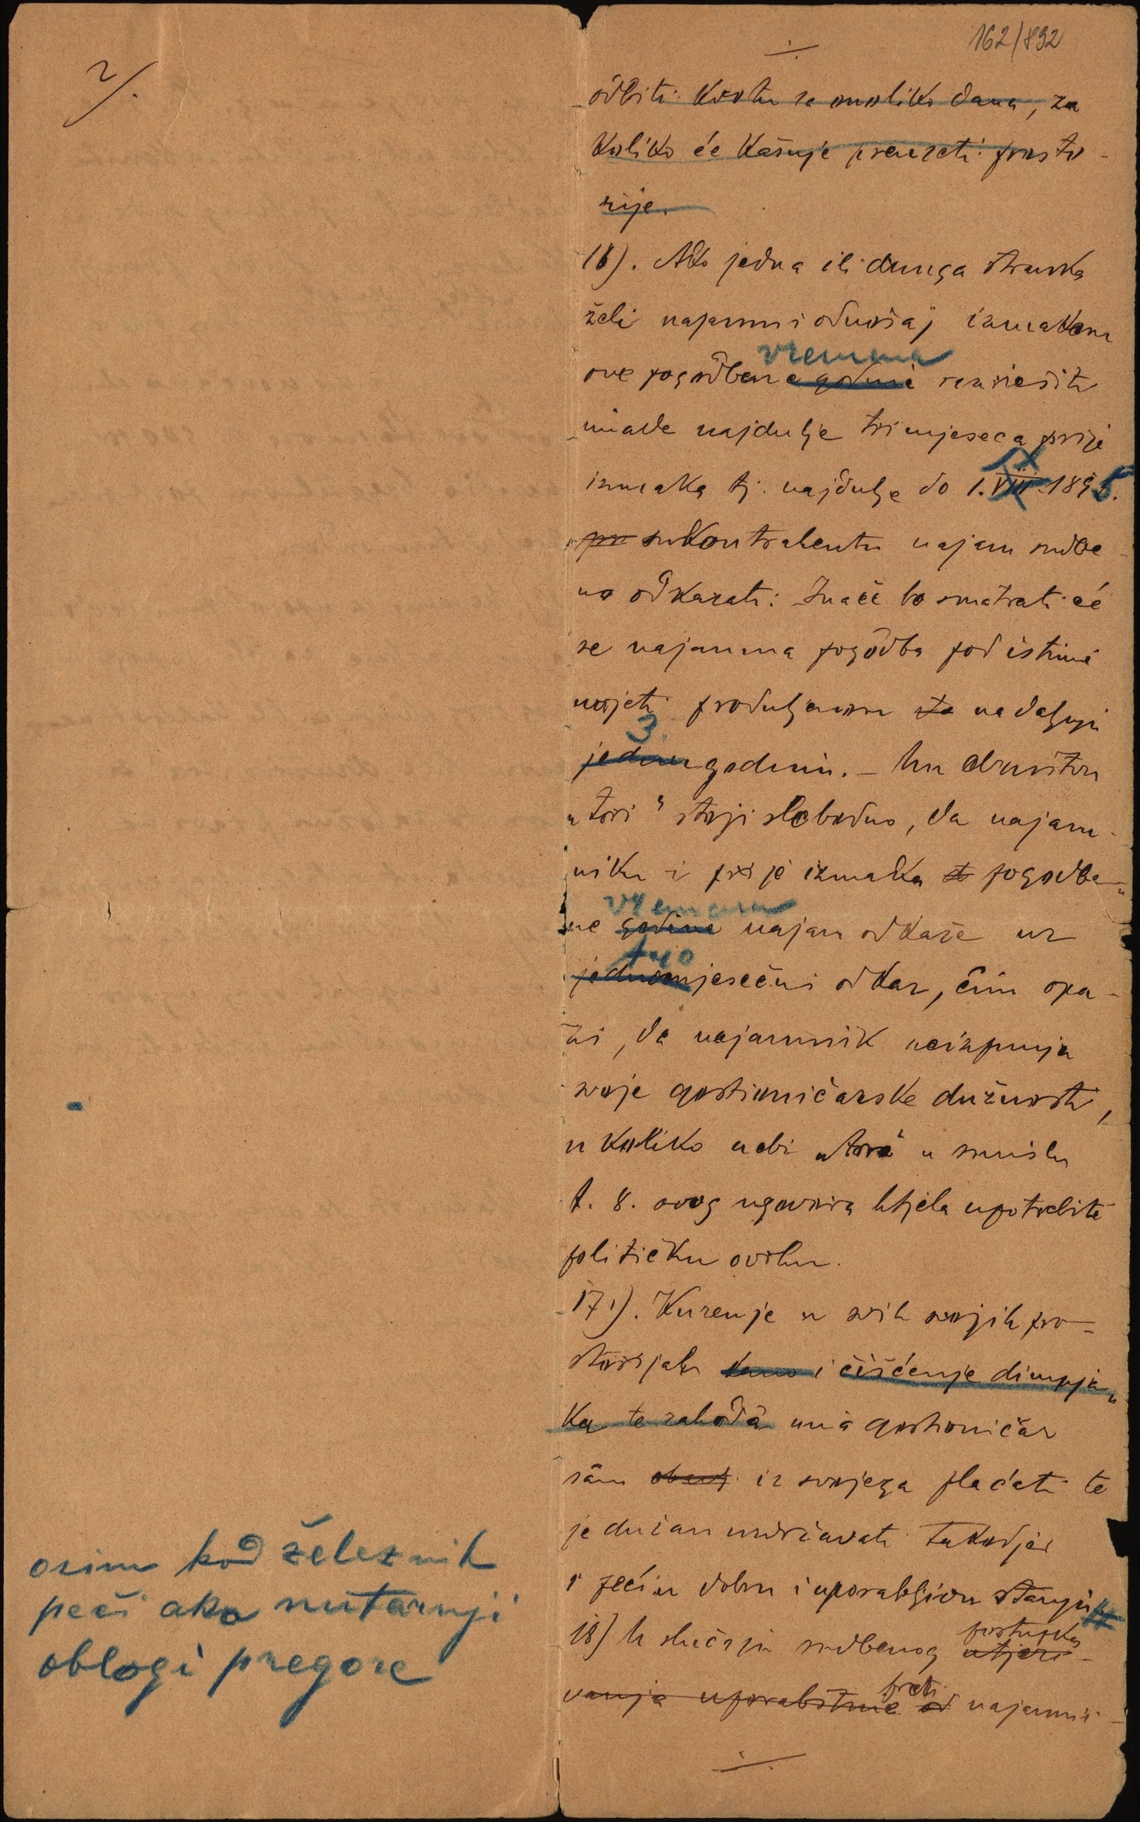 2/.
162/892
odbiti kvotu za onoliko dana, za
koliko će kašnje preuzeti prosto-
rije.
16). Ako jedna ili druga stranka
želi najamni odnošaj izmakom
vremena
ove pogodbene godine razriešiti
imade najdulje tri mjeseca prije
IX
izmaka tj. najdulje do 1. VIII. 1895.
pr sukontrahentu najam sudbe-
no odkazati: Inače bo smatrati će
se najamna pogodba pod istimi
uvjeti produljenom za nadaljnju
3
jednu godinu. – Uru družtvu
„tori" stoji slobodno, da najam-
niku i prije izmaka st pogodbe-
vremena
ne godine najam odkaže uz
tro
jednomjesečni odkaz, čim opa-
zi, da najamnik neizpunja
svoje gostioničarske dužnosti,
u koliko nebi „tori" u smislu
t. 8. ovog ugovora htjela upotrebiti
političku ovrhu.
17.). Kurenje u svih svojih pro-
storijah i čišćenje dimnja-
ka te zahoda ima gostioničar
sâm iz svojega plaćati te
je dužan uzdržavati takodjer
i peći u dobru i uporabljivu stanju #
18) U slučaju sudbenog postupka utjeri-
vanja uporabstine proti od najamni-
osim kod železnih
peći ako nutarnji
oblogi pregore